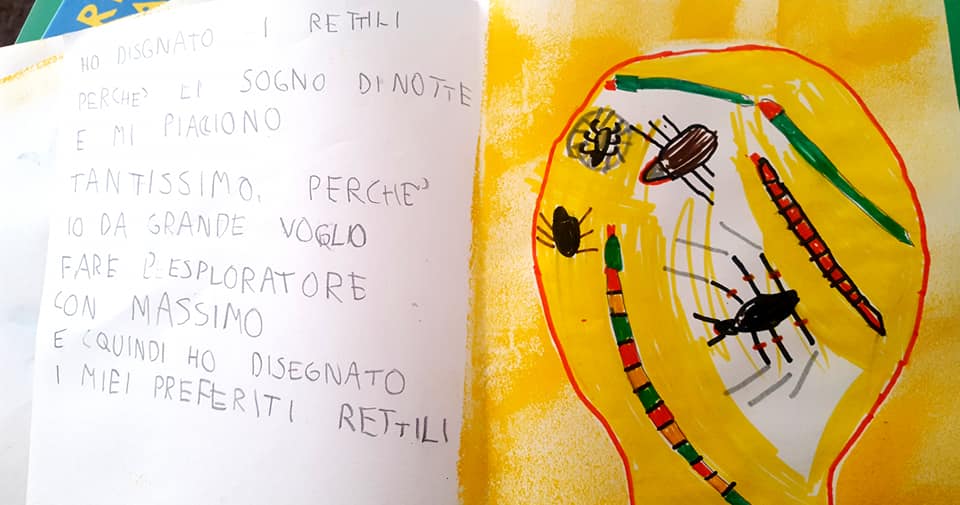 HO DISGNATO I RETTILI
PERCHE' LI SOGNO DI NOTTE
E MI PIACCIONO
TANTISSIMO. PERCHE'
IO DA GRANDE VOGLIO
FARE L'ESPLORATORE
CON MASSIMO
E CQUINDI HO DISEGNATO
I MIEI PREFERITI RETTILI